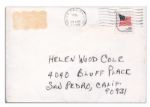 HELEN WOOD COLE
4090 BLUFF PLACE
SAN PEDRO, CALIF
90731